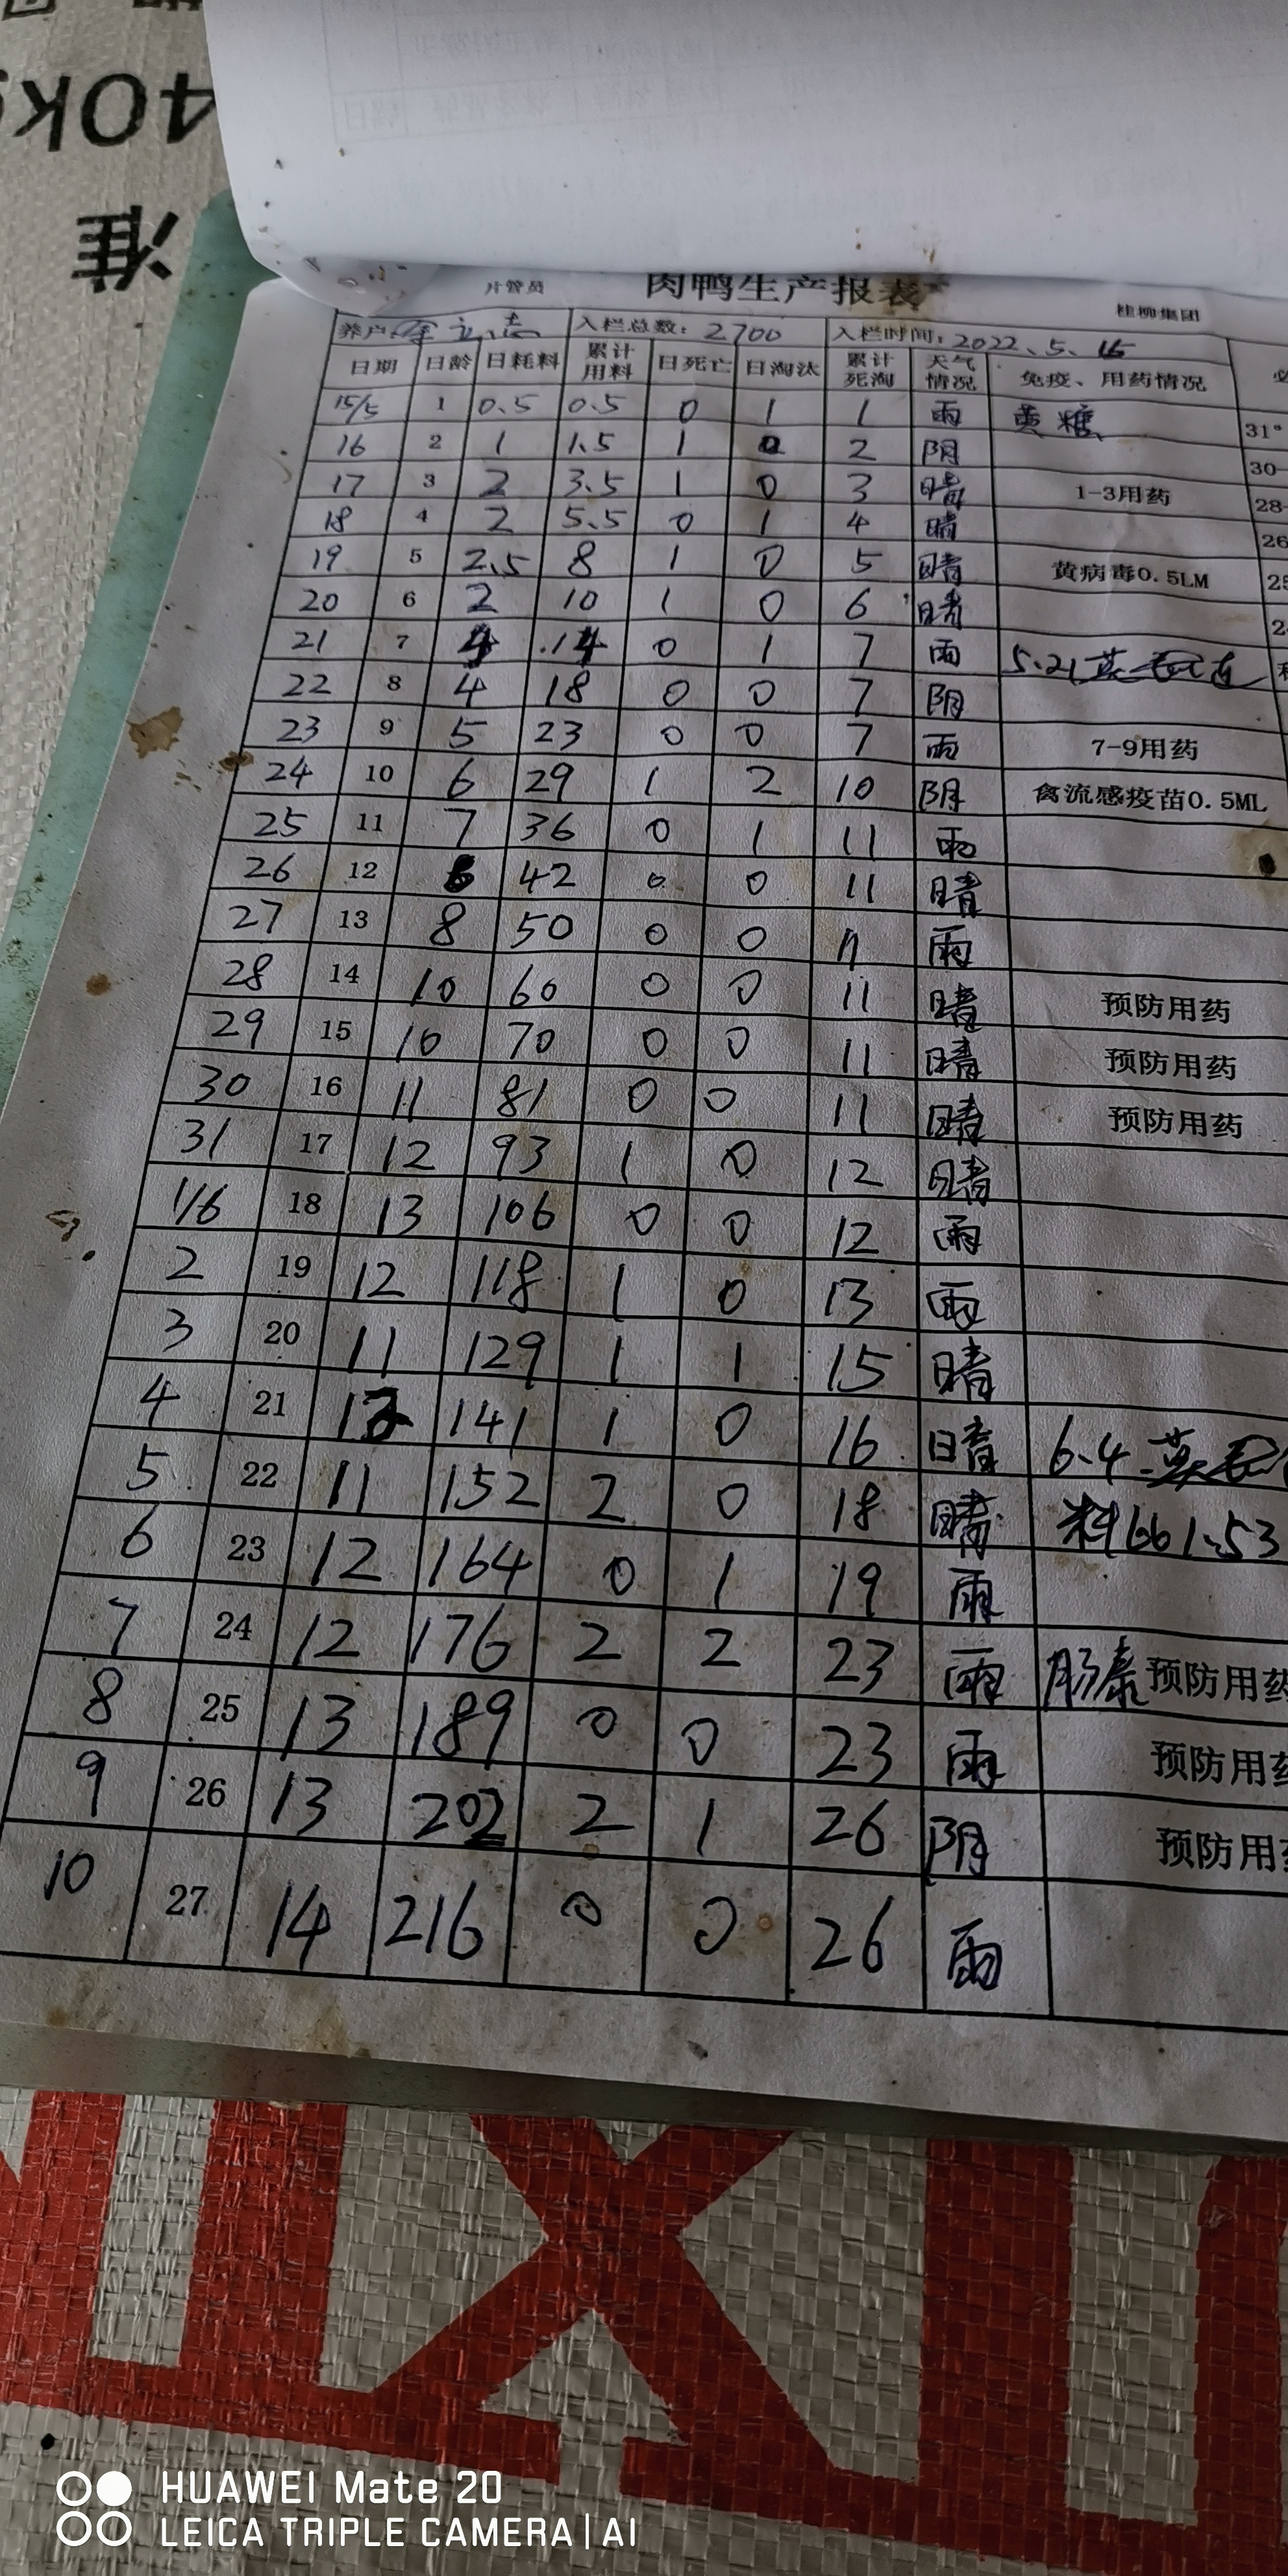 40k
准
片管员 肉鸭生产报表 桂柳集团
养户: 入栏总数: 2700 入栏时间: 2022、5、15
日期 日龄 日耗料 累计用料 日死亡 日淘汰 累计死淘 天气情况 免疫、用药情况
15/5 1 0.5 0.5 0 1 1 雨 黄糖 31°
16 2 1 1.5 1 0 2 阴 30-
17 3 2 3.5 1 0 3 晴 1-3用药 28-
18 4 2 5.5 0 1 4 晴 26
19 5 2.5 8 1 0 5 晴 黄病毒0.5LM 25
20 6 2 10 1 0 6 晴
21 7 4 14 0 1 7 雨 5.21
22 8 4 18 0 0 7 阴
23 9 5 23 0 0 7 雨 7-9用药
24 10 6 29 1 2 10 阴 禽流感疫苗0.5ML
25 11 7 36 0 1 11 雨
26 12 6 42 0 0 11 晴
27 13 8 50 0 0 11 雨
28 14 10 60 0 0 11 晴 预防用药
29 15 10 70 0 0 11 晴 预防用药
30 16 11 81 0 0 11 晴 预防用药
31 17 12 93 1 0 12 晴
1/6 18 13 106 0 0 12 雨
2 19 12 118 1 0 13 雨
3 20 11 129 1 1 15 晴
4 21 12 141 1 0 16 晴 6.4
5 22 11 152 2 0 18 晴 料661.53
6 23 12 164 0 1 19 雨
7 24 12 176 2 2 23 雨 肠泰 预防用药
8 25 13 189 0 0 23 雨 预防用药
9 26 13 202 2 1 26 阴 预防用药
10 27 14 216 0 0 26 雨
HUAWEI Mate 20
LEICA TRIPLE CAMERA | AI